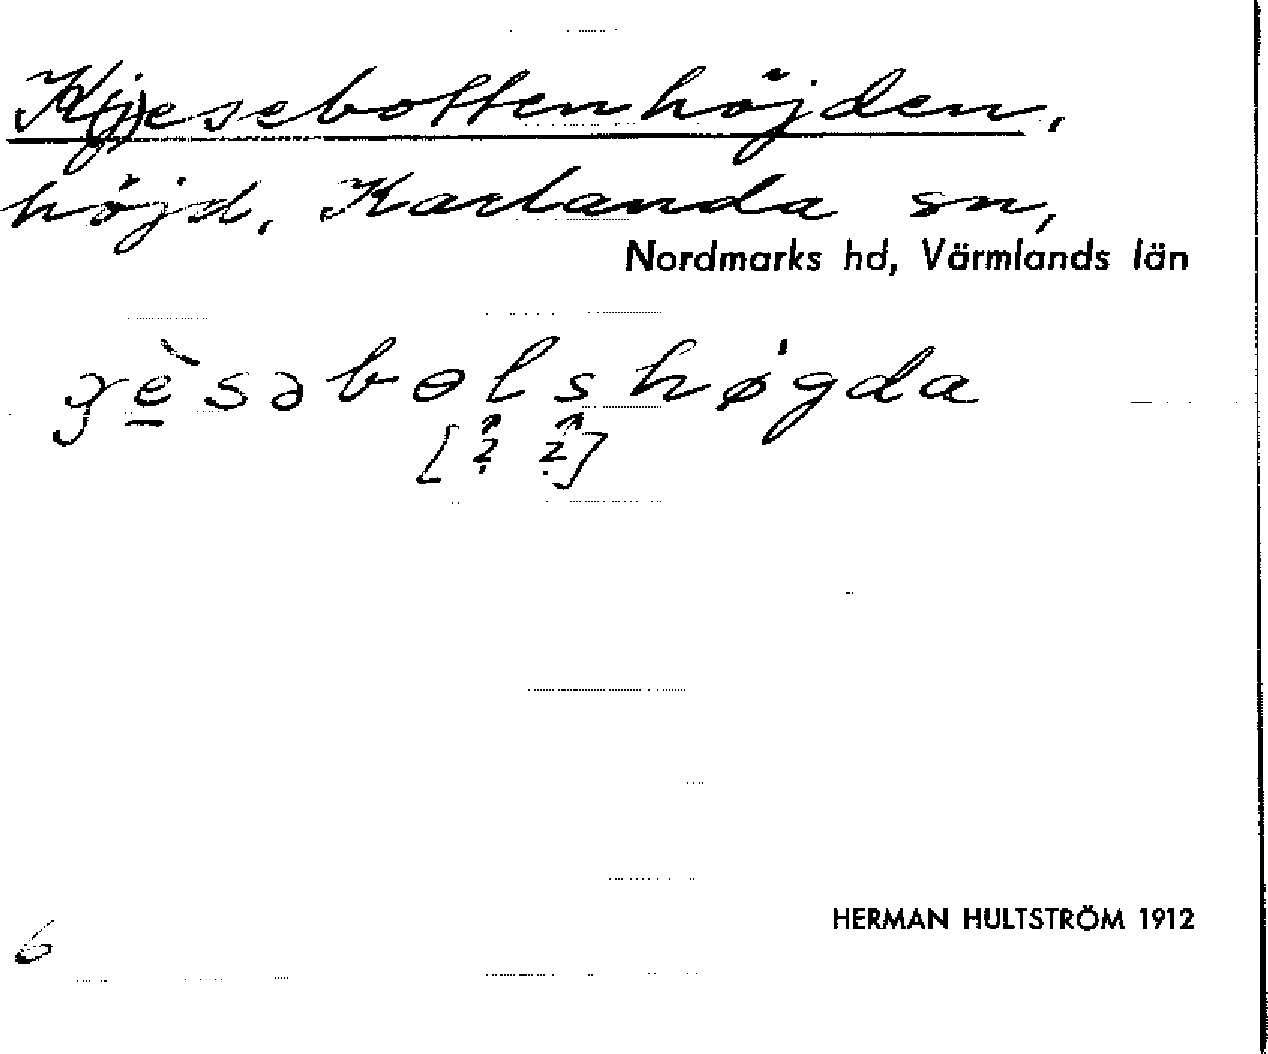 K(j)esebottenhöjden,
höjd, Karlanda sn,
Nordmarks hd, Värmlands län
gèsəbɵlshøgda
[? ?]
HERMAN HULTSTRÖM 1912
6